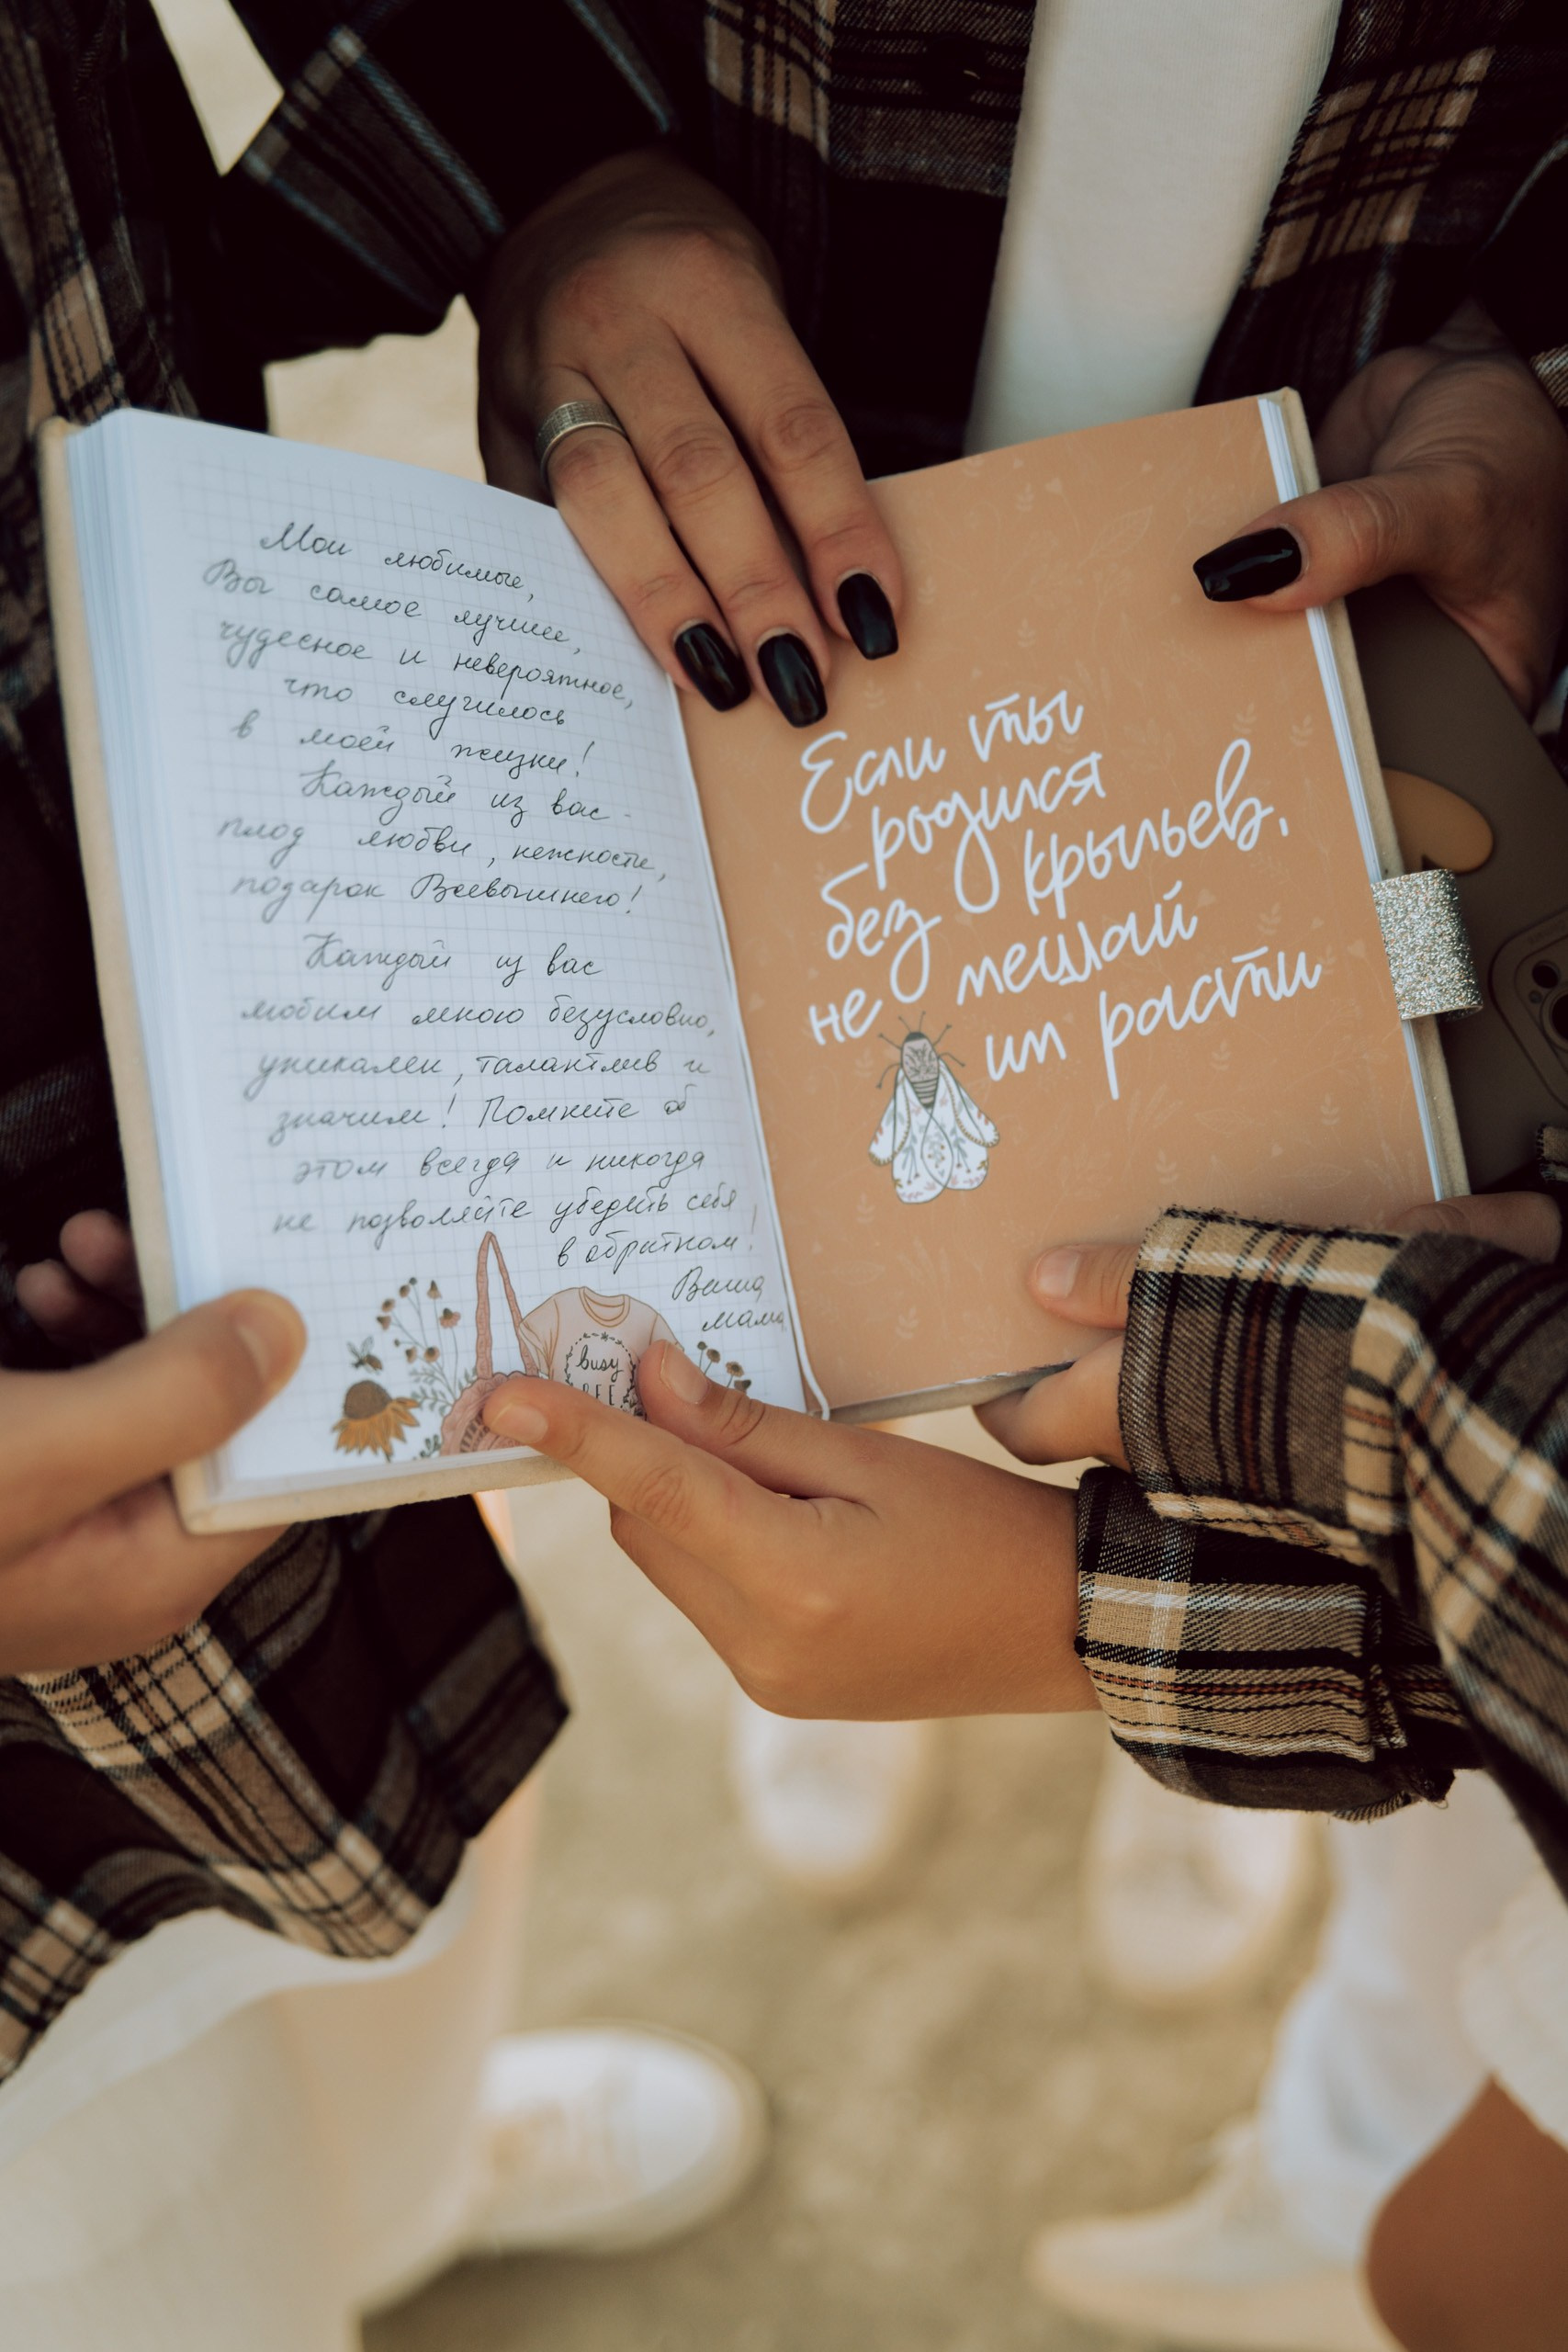 Мои любимые,
Вы самое лучшее,
чудесное и невероятное,
что случилось
в моей жизни!
Каждый из вас -
плод любви, нежности,
подарок Всевышнего!
Каждый из вас
любим мною безусловно,
уникален, талантлив и
значим! Помните об
этом всегда и никогда
не позволяйте убедить себя
в обратном!
Ваша
мама
busy
BEE
Если ты
родился
без крыльев,
не мешай
им расти